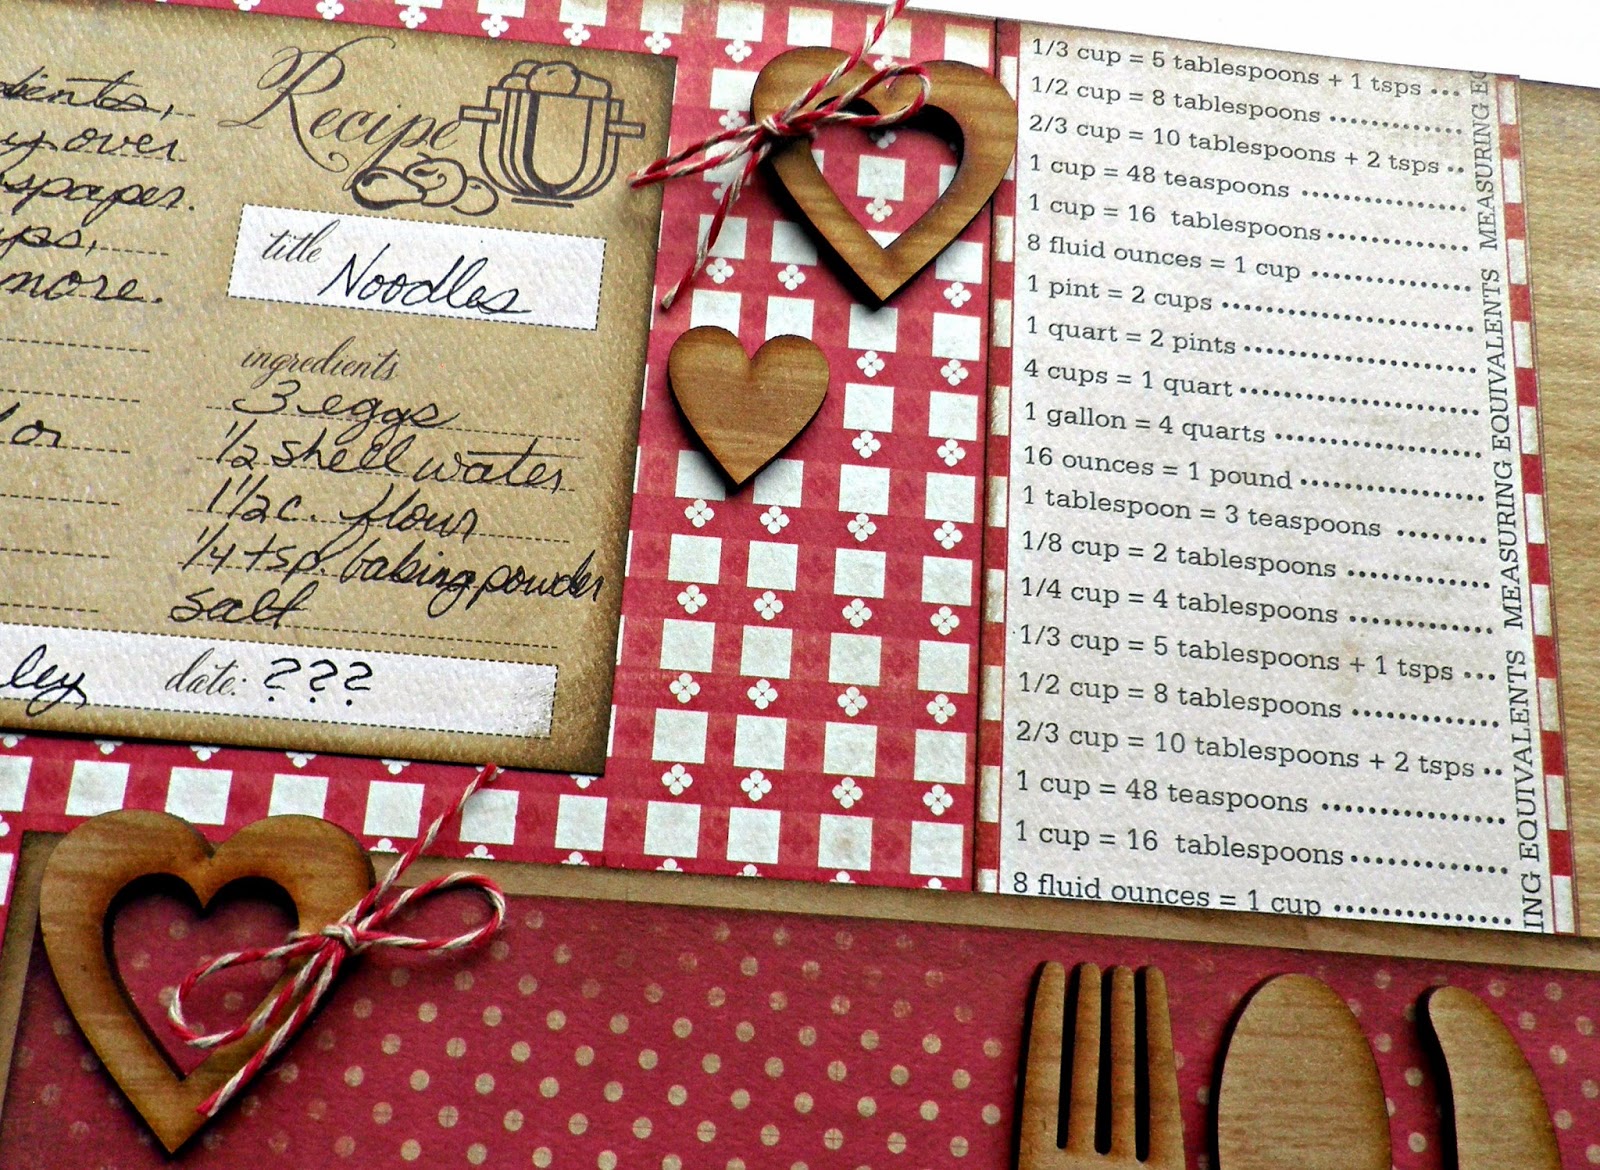 over
more.
or
Recipe
title Noodles
ingredients
3 eggs
1/2 shell water
1 1/2 c. flour
1/4 tsp. baking powder
salt
date: ???
1/3 cup = 5 tablespoons + 1 tsps ...
1/2 cup = 8 tablespoons ..............
2/3 cup = 10 tablespoons + 2 tsps ..
1 cup = 48 teaspoons .................
1 cup = 16 tablespoons...............
8 fluid ounces = 1 cup ................
1 pint = 2 cups ..........................
1 quart = 2 pints ........................
4 cups = 1 quart ........................
1 gallon = 4 quarts .....................
16 ounces = 1 pound ...................
1 tablespoon = 3 teaspoons .........
1/8 cup = 2 tablespoons ..............
1/4 cup = 4 tablespoons ..............
1/3 cup = 5 tablespoons + 1 tsps ...
1/2 cup = 8 tablespoons ..............
2/3 cup = 10 tablespoons + 2 tsps ..
1 cup = 48 teaspoons .................
1 cup = 16 tablespoons...............
8 fluid ounces = 1 cup ................
MEASURING EQUIVALENTS MEASURING EQUIVALENTS MEASURING